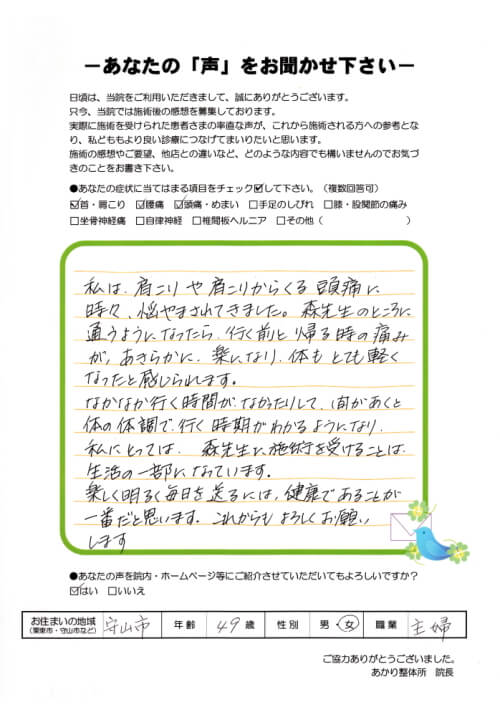 －あなたの「声」をお聞かせ下さい－
日頃は、当院をご利用いただきまして、誠にありがとうございます。
只今、当院では施術後の感想を募集しております。
実際に施術を受けられた患者さまの率直な声が、これから施術される方への参考とな
り、私どももより良い診療につなげてまいりたいと思います。
施術の感想やご要望、他店との違いなど、どのような内容でも構いませんのでお気づ
きのことをお書き下さい。
●あなたの症状に当てはまる項目をチェック☑して下さい。（複数回答可）
☑首・肩こり ☑腰痛 ☑頭痛・めまい □手足のしびれ □膝・股関節の痛み
□坐骨神経痛 □自律神経 □椎間板ヘルニア □その他（ ）
私は、肩こりや肩こりからくる頭痛に
時々、悩やまされてきました。森先生のところに
通うようになったら、行く前と帰る時の痛み
が、あきらかに、楽になり、体もとても軽く
なったと感じられます。
なかなか行く時間がなかったりして、間があくと
体の体調で、行く時期がわかるようになり、
私にとっては、森先生に施術を受けることは、
生活の一部になっています。
楽しく明るく毎日を送るには、健康であることが
一番だと思います。これからもよろしくお願い
します
●あなたの声を院内・ホームページ等にご紹介させていただいてもよろしいですか？
☑はい □いいえ
お住まいの地域 守山市 年齢 49歳 性別 男・女 職業 主婦
（栗東市・守山市など）
ご協力ありがとうございました。
あかり整体所 院長